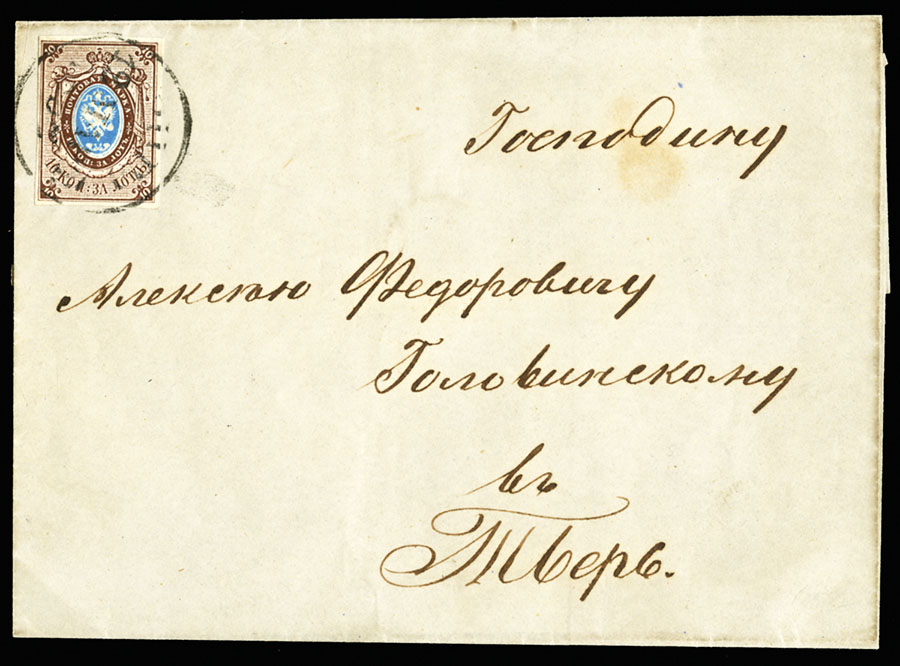 ПОЧТОВАЯ МАРКА
10 КОП: ЗА ЛОТЪ
10 КОП: ЗА ЛОТЪ
Господину
Алексѣю Федоровичу
Головинскому
въ
Тверь.